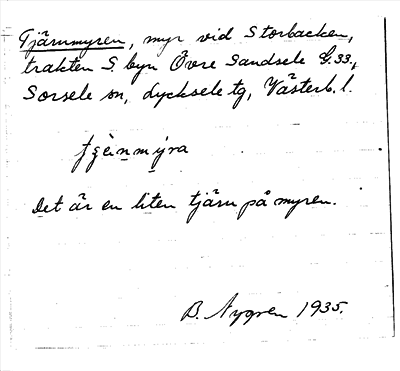 Tjärnmyren, myr vid Storbacken,
trakten S. byn Övre Sandsele G.33,
Sorsele sn, Lycksele tg, Västerb. l.
Det är en liten tjärn på myren.
B. Nygren 1935.